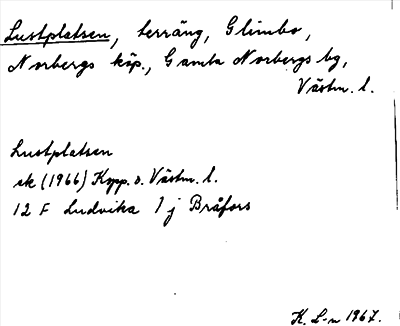 Lustplatsen, terräng, Glimbo,
Norbergs köp., Gamla Norbergs bg,
Västm. l.
Lustplatsen
ek (1966) Kopp. o. Västm. l.
12 F Ludvika 1 j Bråfors
K. L-n 1967.